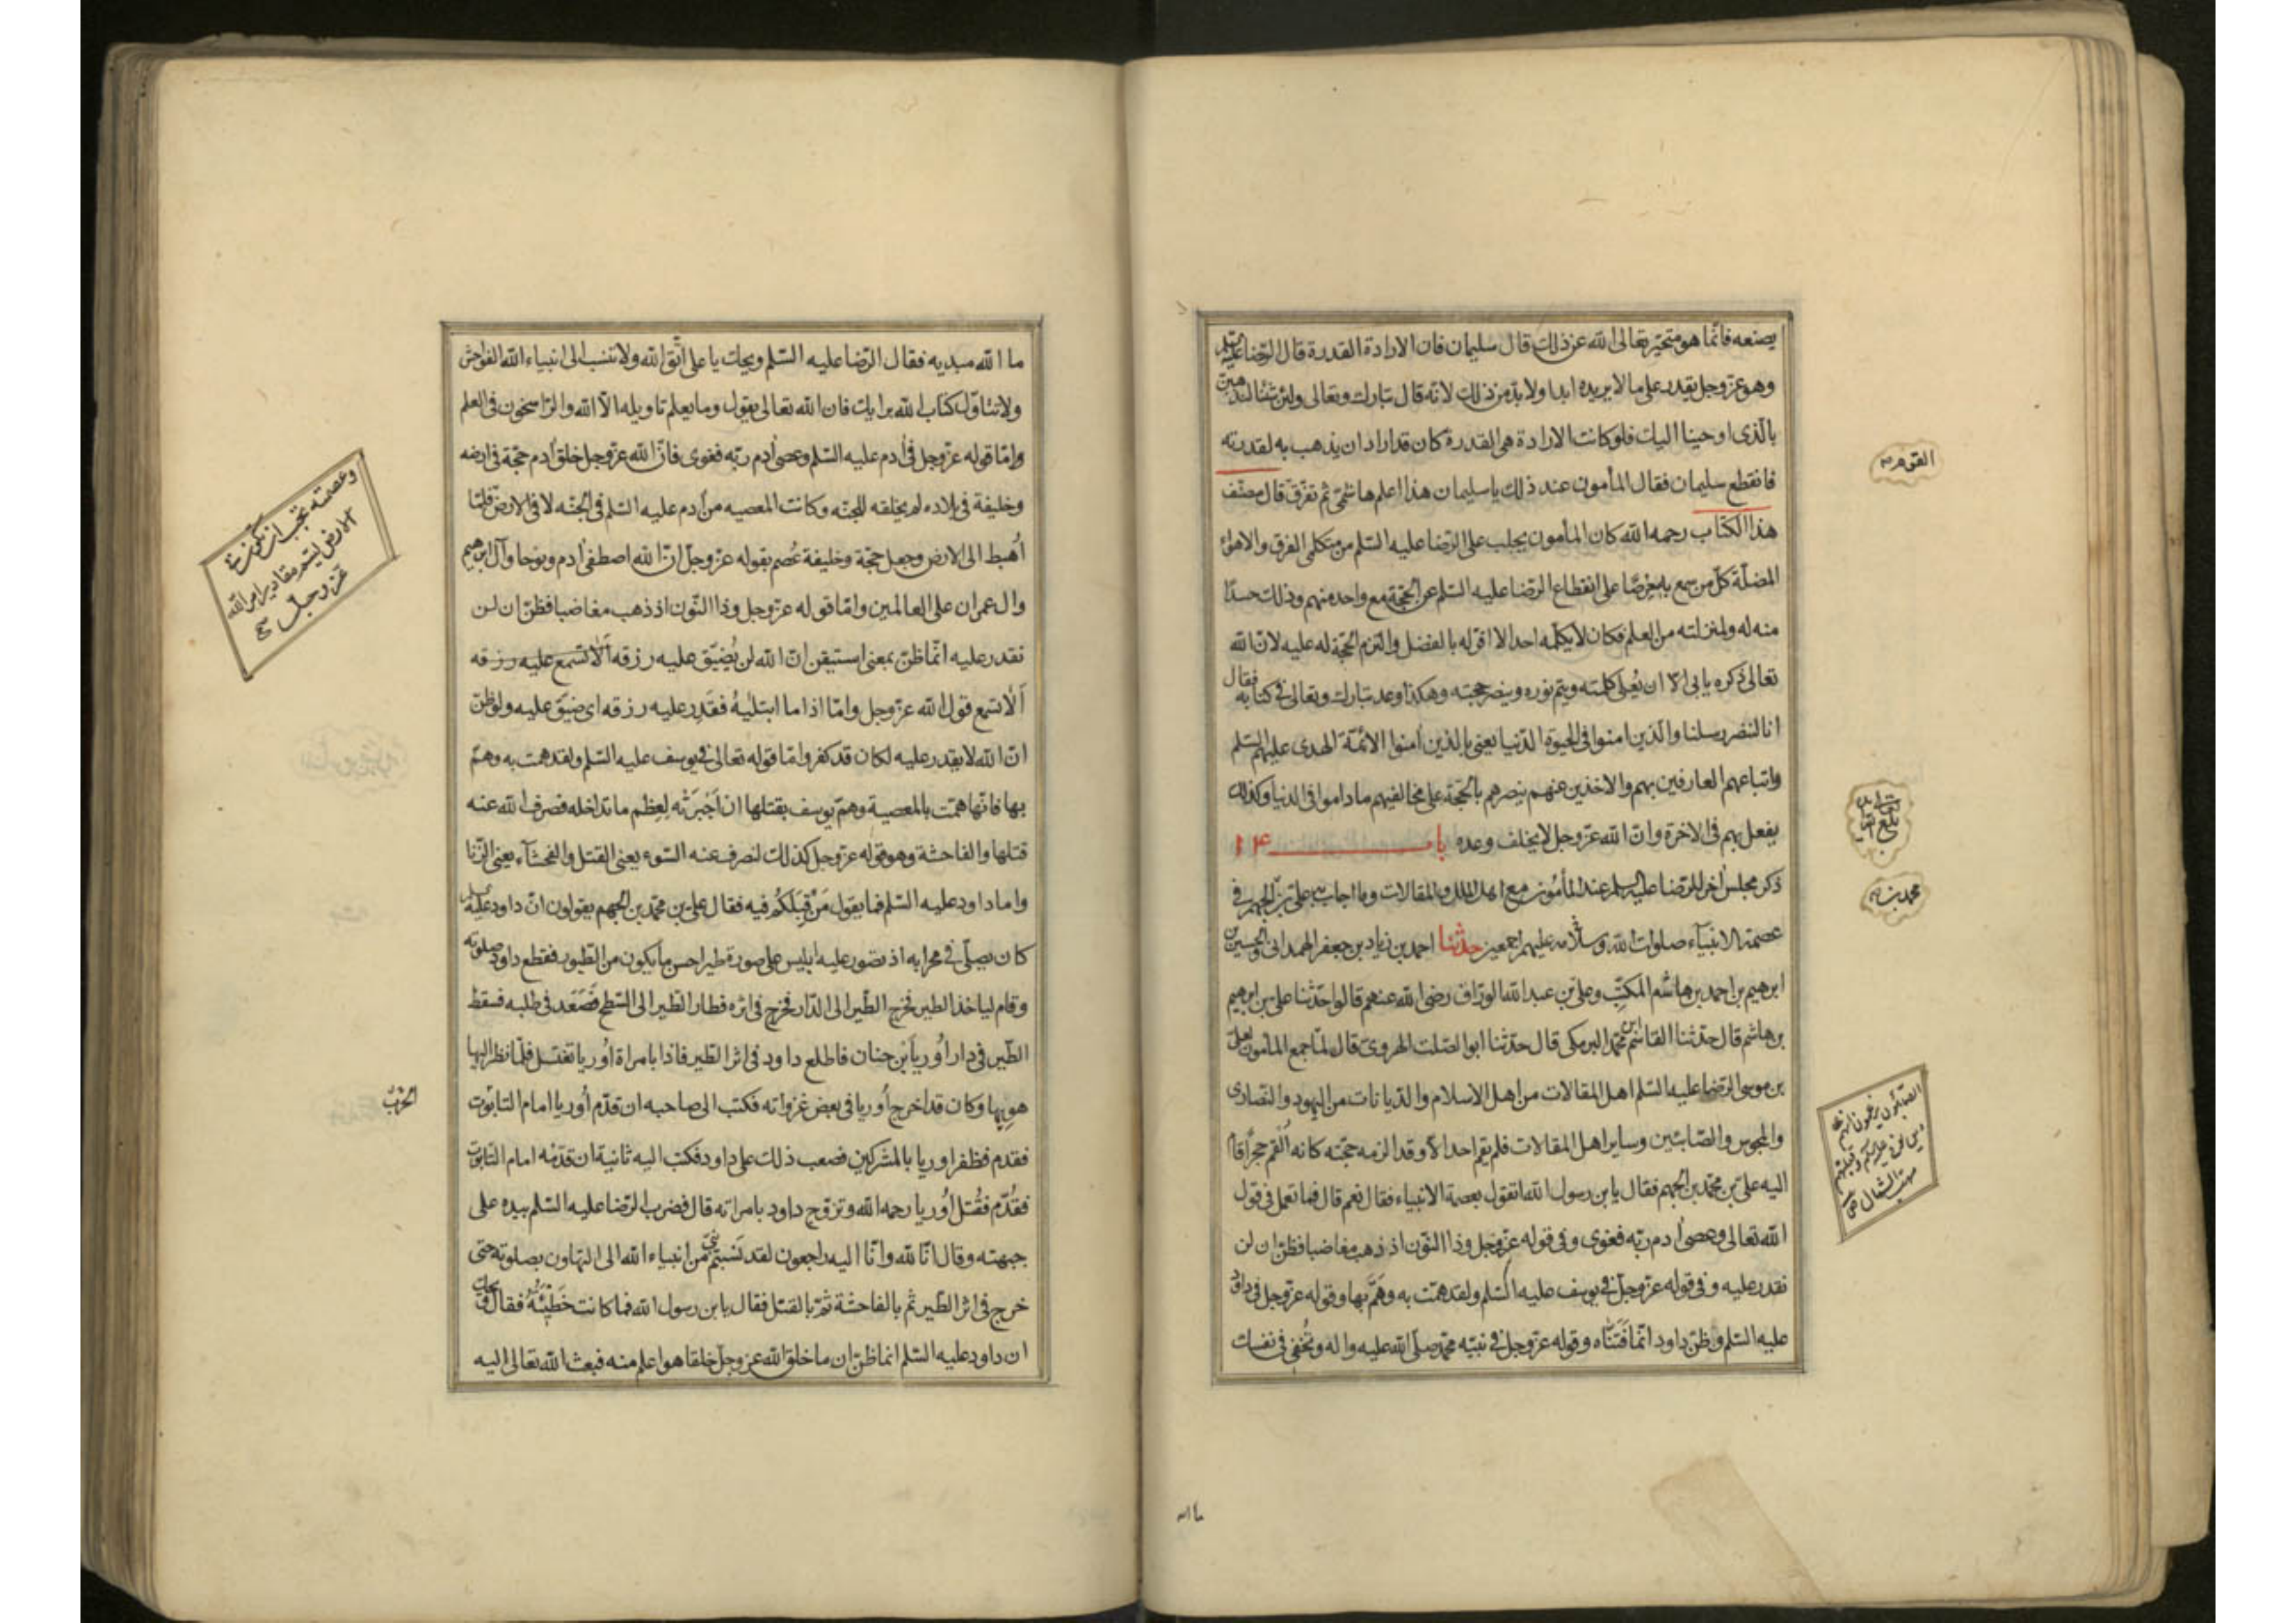 يصنعه فانما هو متحير تعالى الله عن ذلك قال سليمان فان الارادة القدرة قال الرضا عليه السلم
وهو عز وجل يقدر على ما لا يريده ابدا ولا بد من ذلك لانه قال تبارك وتعالى ولئن شئنا لنذهبن
بالذى اوحينا اليك فلو كانت الارادة هى القدرة كان قد اراد ان يذهب به لقدرته
فانقطع سليمان فقال المأمون عند ذلك يا سليمان هذا اعلم هاشمى ثم تفرق قال مصنف
هذا الكتاب رحمه الله كان المأمون يجلب على الرضا عليه السلم من متكلمى الفرق والاهواء
المضلة كل من سمع به حرصا على انقطاع الرضا عليه السلم عن الحجة مع واحد منهم وذلك حسدا
منه له ولمنزلته من العلم فكان لا يكلمه احد الا اقر له بالفضل والتزم الحجة له عليه لان الله
تعالى ذكره يابى الا ان يعلى كلمته ويتم نوره وينصر حجته وهكذا وعد تبارك وتعالى فى كتابه فقال
انا لننصر رسلنا والذين امنوا فى الحيوة الدنيا يعنى بالذين أمنوا الائمة الهدى عليهم السلم
واتباعهم العارفين بهم والاخذين عنهم ينصرهم بالحجة على مخالفيهم ما داموا فى الدنيا وكذلك
يفعل بهم فى الاخرة وان الله عز وجل لا يخلف وعده باب ١٤
ذكر مجلس اخر للرضا عليه السلم عند المأمون مع اهل الملل والمقالات وما اجاب به على بن الجهم فى
عصمة الانبياء صلوات الله وسلامه عليهم اجمعين حدثنا احمد بن زياد بن جعفر الهمدانى والحسين بن
ابرهيم بن احمد بن هاشم المكتب وعلى بن عبد الله الوراق رضى الله عنهم قالوا حدثنا على بن ابرهيم
بن هاشم قال حدثنا القاسم بن محمد البرمكى قال حدثنا ابو الصلت الهروى قال لما جمع المأمون لعلى
بن موسى الرضا عليه السلم اهل المقالات من اهل الاسلام والديانات من اليهود والنصارى
والمجوس والصابئين وساير اهل المقالات فلم يقم احد الا وقد الزمه حجته كانه ألقم حجرا قام
اليه على بن محمد بن الجهم فقال يا بن رسول الله اتقول بعصمة الانبياء فقال نعم قال فما تعمل فى قول
الله تعالى وعصى أدم ربه فغوى وفى قوله عز وجل وذا النون اذ ذهب مغاضبا فظن ان لن
نقدر عليه وفى قوله عز وجل فى يوسف عليه السلم ولقد همت به وهم بها وقوله عز وجل فى داود
عليه السلم وظن داود انما فتناه وقوله عز وجل فى نبيه محمد صلى الله عليه واله وتخفى فى نفسك
محمد بن
ما الله
ما الله مبديه فقال الرضا عليه السلم ويحك يا على اتق الله ولا تنسب الى انبياء الله الفواحش
ولا تتاول كتاب الله برايك فان الله تعالى يقول وما يعلم تاويله الا الله والراسخون فى العلم
واما قوله عز وجل فى أدم عليه السلم وعصى أدم ربه فغوى فان الله عز وجل خلق أدم حجة فى ارضه
وخليفة فى بلاده لم يخلقه للجنة وكانت المعصيه من أدم عليه السلم فى الجنه لا فى الارض فلما
أهبط الى الارض وجعل حجة وخليفة عصم بقوله عز وجل ان الله اصطفى أدم ونوحا وآل ابرهيم
وال عمران على العالمين واما قوله عز وجل وذا النون اذ ذهب مغاضبا فظن ان لن
نقدر عليه انما ظن بمعنى استيقن ان الله لن يضيق عليه رزقه ألا تسمع عليه رزقه
ألا تسمع قول الله عز وجل واما اذا ما ابتليه فقدر عليه رزقه اى ضيق عليه ولو ظن
ان الله لا يقدر عليه لكان قد كفر واما قوله تعالى فى يوسف عليه السلم ولقد همت به وهم
بها فانها همت بالمعصية وهم يوسف بقتلها ان اجبرته لعظم ما تداخله فصرف الله عنه
قتلها والفاحشة وهو قوله عز وجل كذلك لنصرف عنه السوء يعنى القتل والفحشآء يعنى الزنا
واما داود عليه السلم فما يقول من قبلكم فيه فقال على بن محمد بن الجهم يقولون ان داود عليه السلم
كان يصلى فى محرابه اذ تصور عليه ابليس على صورة طير احسن ما يكون من الطيور فقطع داود صلوته
وقام لياخذ الطير فخرج الطير الى الدار فخرج فى اثره فطار الطير الى السطح فصعد فى طلبه فسقط
الطير فى دار أوريا بن حنان فاطلع داود فى اثر الطير فاذا بامراة أوريا تغتسل فلما نظر اليها
هويها وكان قد اخرج أوريا فى بعض غزواته فكتب الى صاحبه ان قدم أوريا امام التابوت
فقدم فظفر اوريا بالمشركين فصعب ذلك على داود فكتب اليه ثانية ان قدمه امام التابوت
فقدم فقتل أوريا رحمه الله وتزوج داود بامراته قال فضرب الرضا عليه السلم بيده على
جبهته وقال انا لله وانا اليه راجعون لقد نسبتم نبى من انبياء الله الى التهاون بصلوته حتى
خرج فى اثر الطير ثم بالفاحشة ثم بالقتل فقال يا بن رسول الله فما كانت خطيئته فقال ويحك
ان داود عليه السلم انما ظن ان ما خلق الله عز وجل خلقا هو اعلم منه فبعث الله تعالى اليه
وعصمته تجب ان تكون فى
الارض ليتم مقادير امر الله
عز وجل صح
الحرب